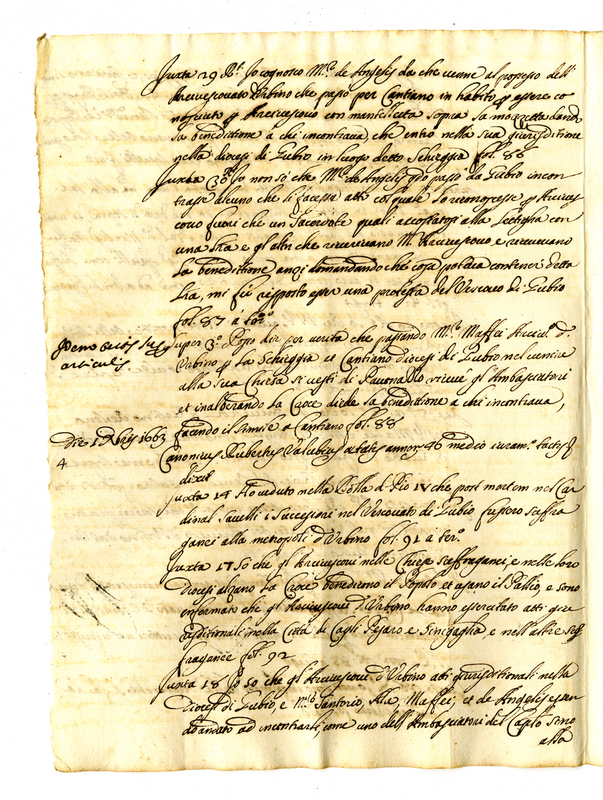 Juxta 29 R.t Io cognosco M.re de Angelis da che venne al possesso dell'
Arcivescovato d'Urbino che passò per Cantiano in habito p essere co
nosciuto p Arcivescovo con mantelletta sopra la mozzetta dando
la benedittione a chi incontrava, che entrò nella sua giurisdittione
nella diocesi di Gubio in luogo detto Scheggia fol. 86
Juxta 30 Io non so che M.re de Angelis qdo passò da Gubio incon
trasse alcuno che li facesse atti col quale lo ricongresse p Arcives
covo fuori che un Sacerdote quali accostatosi alla Lettiga con
una lra e gl'altri che riverivano M. Arcivescovo e ricevevano
la benedittione anzi domandando che cosa poteva contener detta
lra, mi fù risposto esser una protesta del Vescovo di Gubio
fol. 87 à ter.o
Super 3.o Posso dir per verità che passando M.re Maffei Arciv.o d'
Urbino p la Scheggia et Cantiano diocesi di Gubio nel venire
alla sua Chiesa si vestì di Pavonazzo ricevè gl'Ambasciatori
et inalberando la Croce diede la benedittione a chi incontrava,
facendo il simile a Cantiano fol. 88
Die 1 Xbris 1663
4
Canonicus Rubertus Valubius etatis annor. 46 medio iuram.o tactis &
dixit
Juxta 14 Hò veduto nella Bolla d Pio IV che post mortem nel Car
dinal Savelli i Successori nel Vescovato di Gubio fussero suffra
ganei alla metropoli d'Urbino fol. 91 à ter.o
Juxta 17 So che gl'Arcivescovi nelle Chiese suffraganei, e nelle loro
Diocesi alzano la Croce benedicono il Popolo et usano il Pallio, e sono
informato che gl'Arcivescovi d'Urbino hanno essercitato atti giu
risditionali nella Città di Cagli Pesaro e Sinigaglia e nell'altre suf
fraganee fol. 92
Juxta 18 Io so che gl'Arcivescovi d'Urbino atti giurisditionali nella
Diocesi di Gubio, e M.re Santorio, Ala, Maffei, et de Angelis essen
do andato ad incontrarli, come uno dell'Ambasciatori del Caplo sino
alla